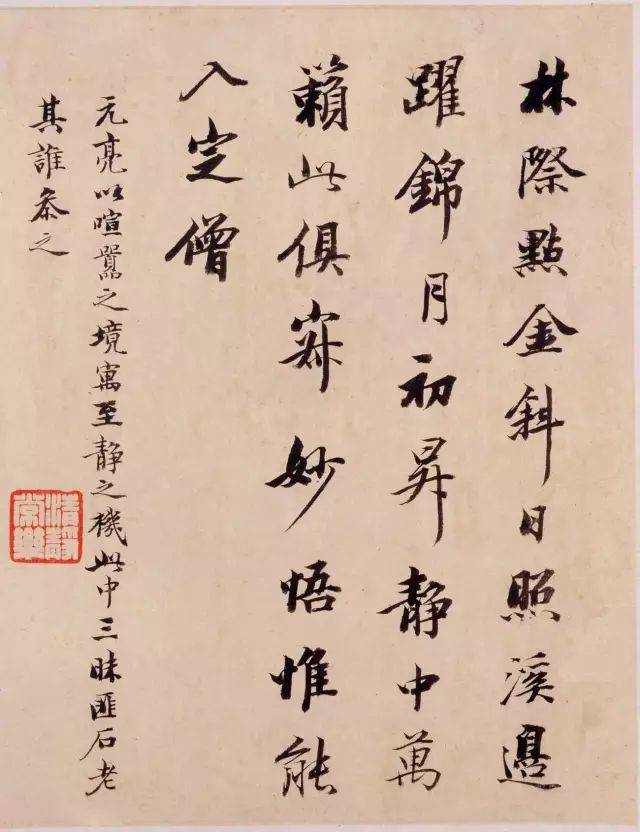 林際點金斜日照溪邊
躍錦月初昇靜中萬
籟此俱寂妙悟惟能
入定僧
元亮以暄囂之境寓至靜之機此中三昧匪石老
其誰叅之
清靜
常樂